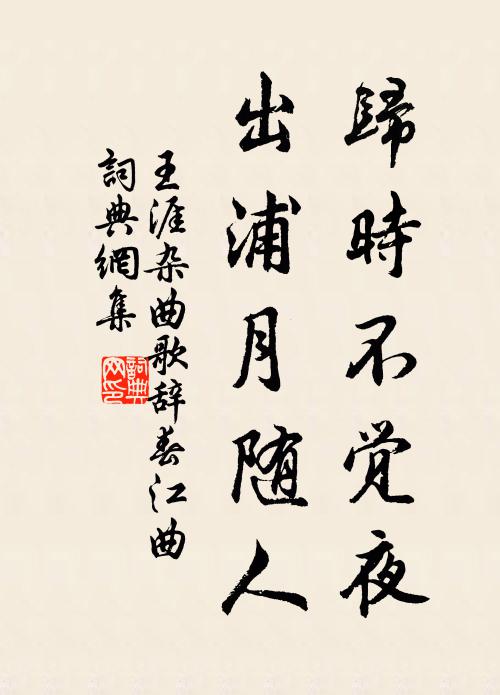 歸時不觉夜
出浦月随人
王涯杂曲歌辞春江曲
詞典網集
詞典
网印